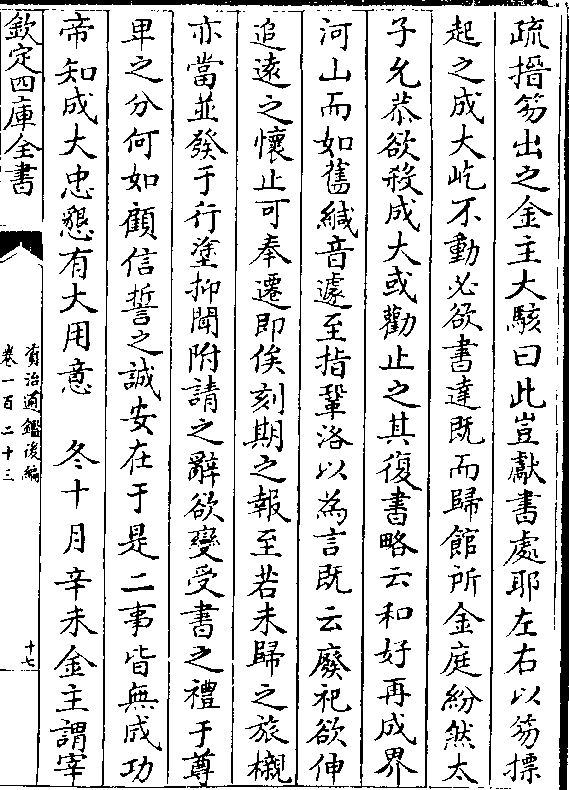 疏搢笏出之金主大駭曰此豈獻書處耶左右以笏摽
起之成大屹不動必欲書達既而歸館所金庭紛然太
子允恭欲殺成大或勸止之其復書略云和好再成界
河山而如舊緘音遽至指鞏洛以為言既云廢祀欲伸
追遠之懷止可奉遷即俟刻期之報至若未歸之旅櫬
亦當並發于行塗抑聞附請之辭欲變受書之禮于尊
卑之分何如顧信誓之誠安在于是二事皆無成功
帝知成大忠懇有大用意　冬十月辛未金主謂宰
欽定四庫全書
資治通鑑後編
卷一百二十三
十七